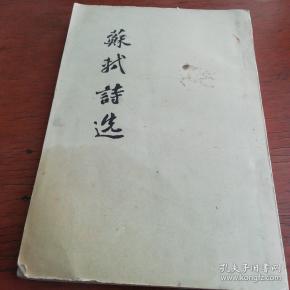 蘇軾詩选
孔夫子旧书网